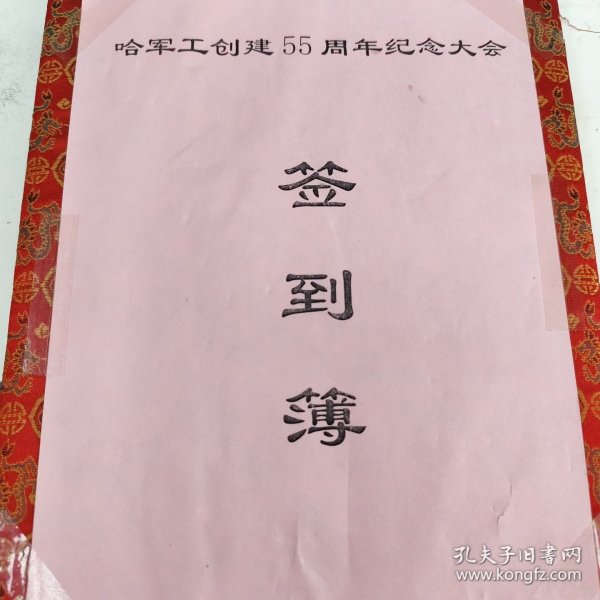 哈军工创建55周年纪念大会
签
到
簿
孔夫子旧书网
www.kongfz.com